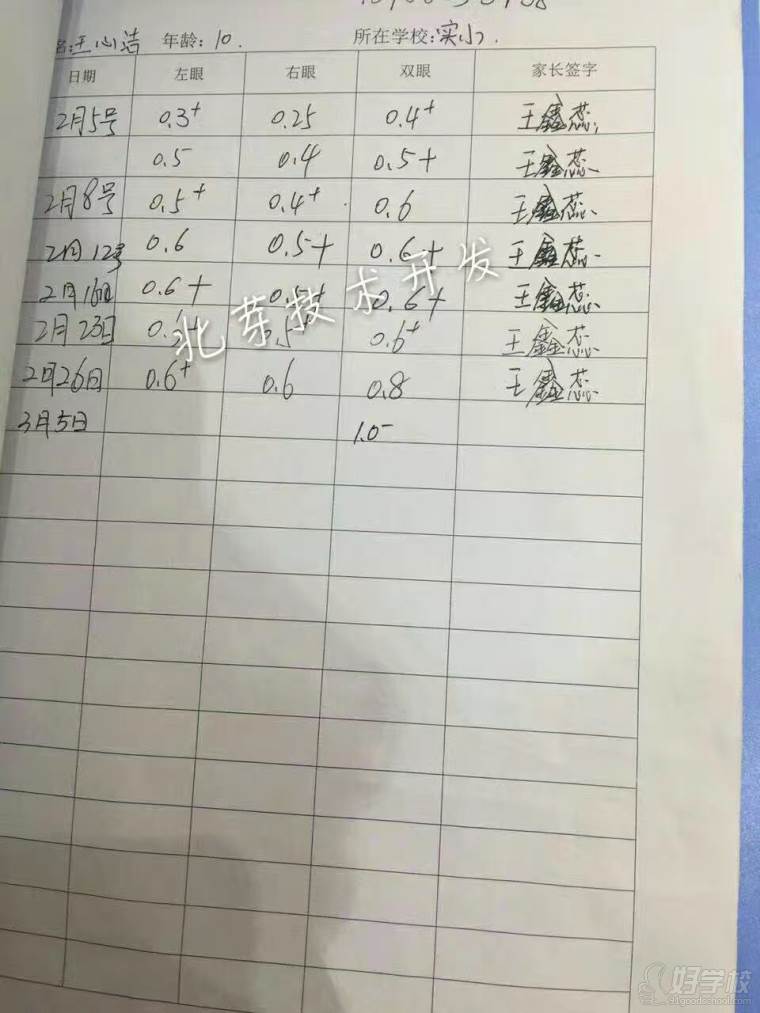 名:王心洁 年龄:10. 所在学校:实小.
日期 左眼 右眼 双眼 家长签字
2月5号 0.3+ 0.25 0.4+ 王鑫蕊.
0.5 0.4 0.5+ 王鑫蕊.
2月8号 0.5+ 0.4+ 0.6 王鑫蕊.
2月12号 0.6 0.5+ 0.6+ 王鑫蕊.
2月16日 0.6+ 0.5+ 0.6+ 王鑫蕊.
2月23日 0.5 0.6+ 王鑫蕊
2月26日 0.6+ 0.6 0.8 王鑫蕊.
3月5日 1.0-
北芽技术开发
好学校
91goodschool.com